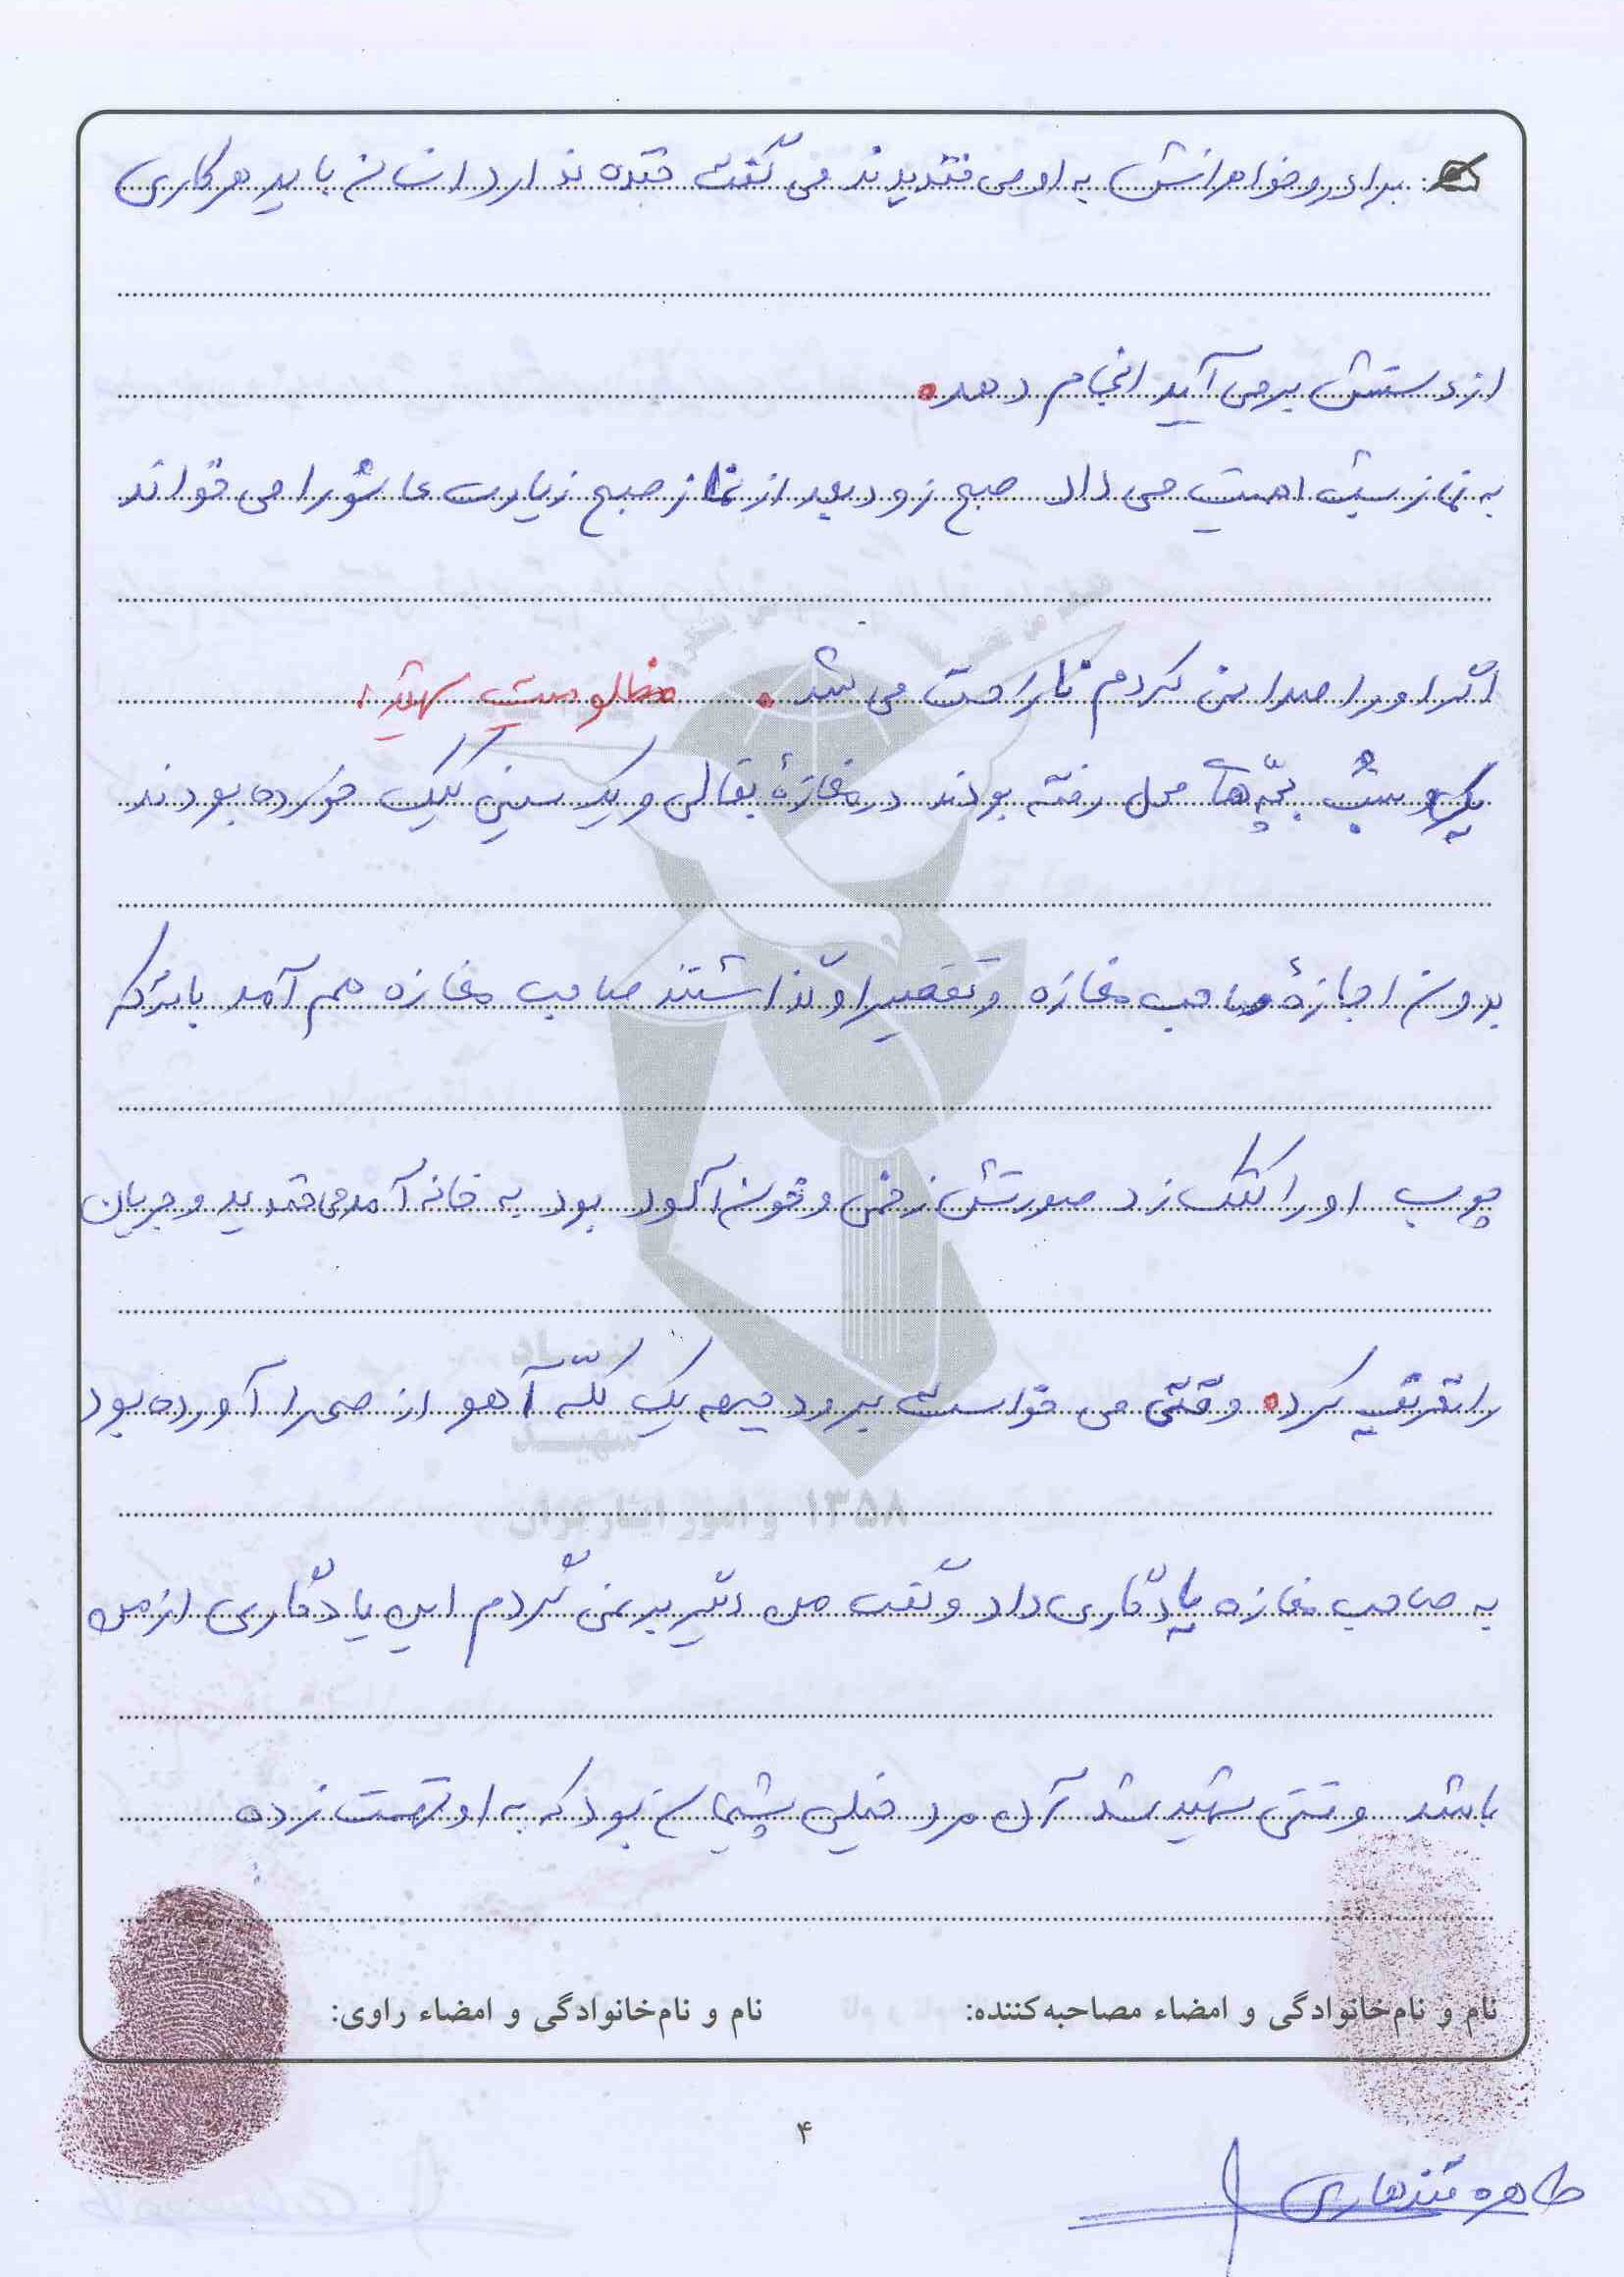 برادر و خواهرانش به او می خندیدند می گفت خنده ندارد انسان باید هر کاری
از دستش برمی آید انجام دهد.
به نماز بیشتر اهمیت می داد صبح زود بعد از نماز صبح زیارت عاشورا می خواند
اگر او را صدا نمی کردم ناراحت می شد. مظلومیت شهید:
یک شب بچّه های محل رفته بودند در مغازهٔ بقالی و یک سینی کیک خورده بودند
بدون اجازهٔ صاحب مغازه و تقصیر او گذاشتند صاحب مغازه هم آمد با ترکه
چوب او را کتک زد صورتش زخمی و خون آلود بود به خانه آمد می خندید و جریان
را تعریف کرد. وقتی می خواست برود جبهه یک کلّه آهو از صحرا آورده بود
به صاحب مغازه یادگاری داد و گفت من دیگر برنمی گردم این یادگاری از من
باشد وقتی شهید شد آن مرد خیلی پشیمان بود که به او تهمت زده
نام و نام‌خانوادگی و امضاء مصاحبه‌کننده: نام و نام‌خانوادگی و امضاء راوی:
۴
طاهره قندهاری
بنیاد
شهید
و امور ایثارگران ۱۳۵۸